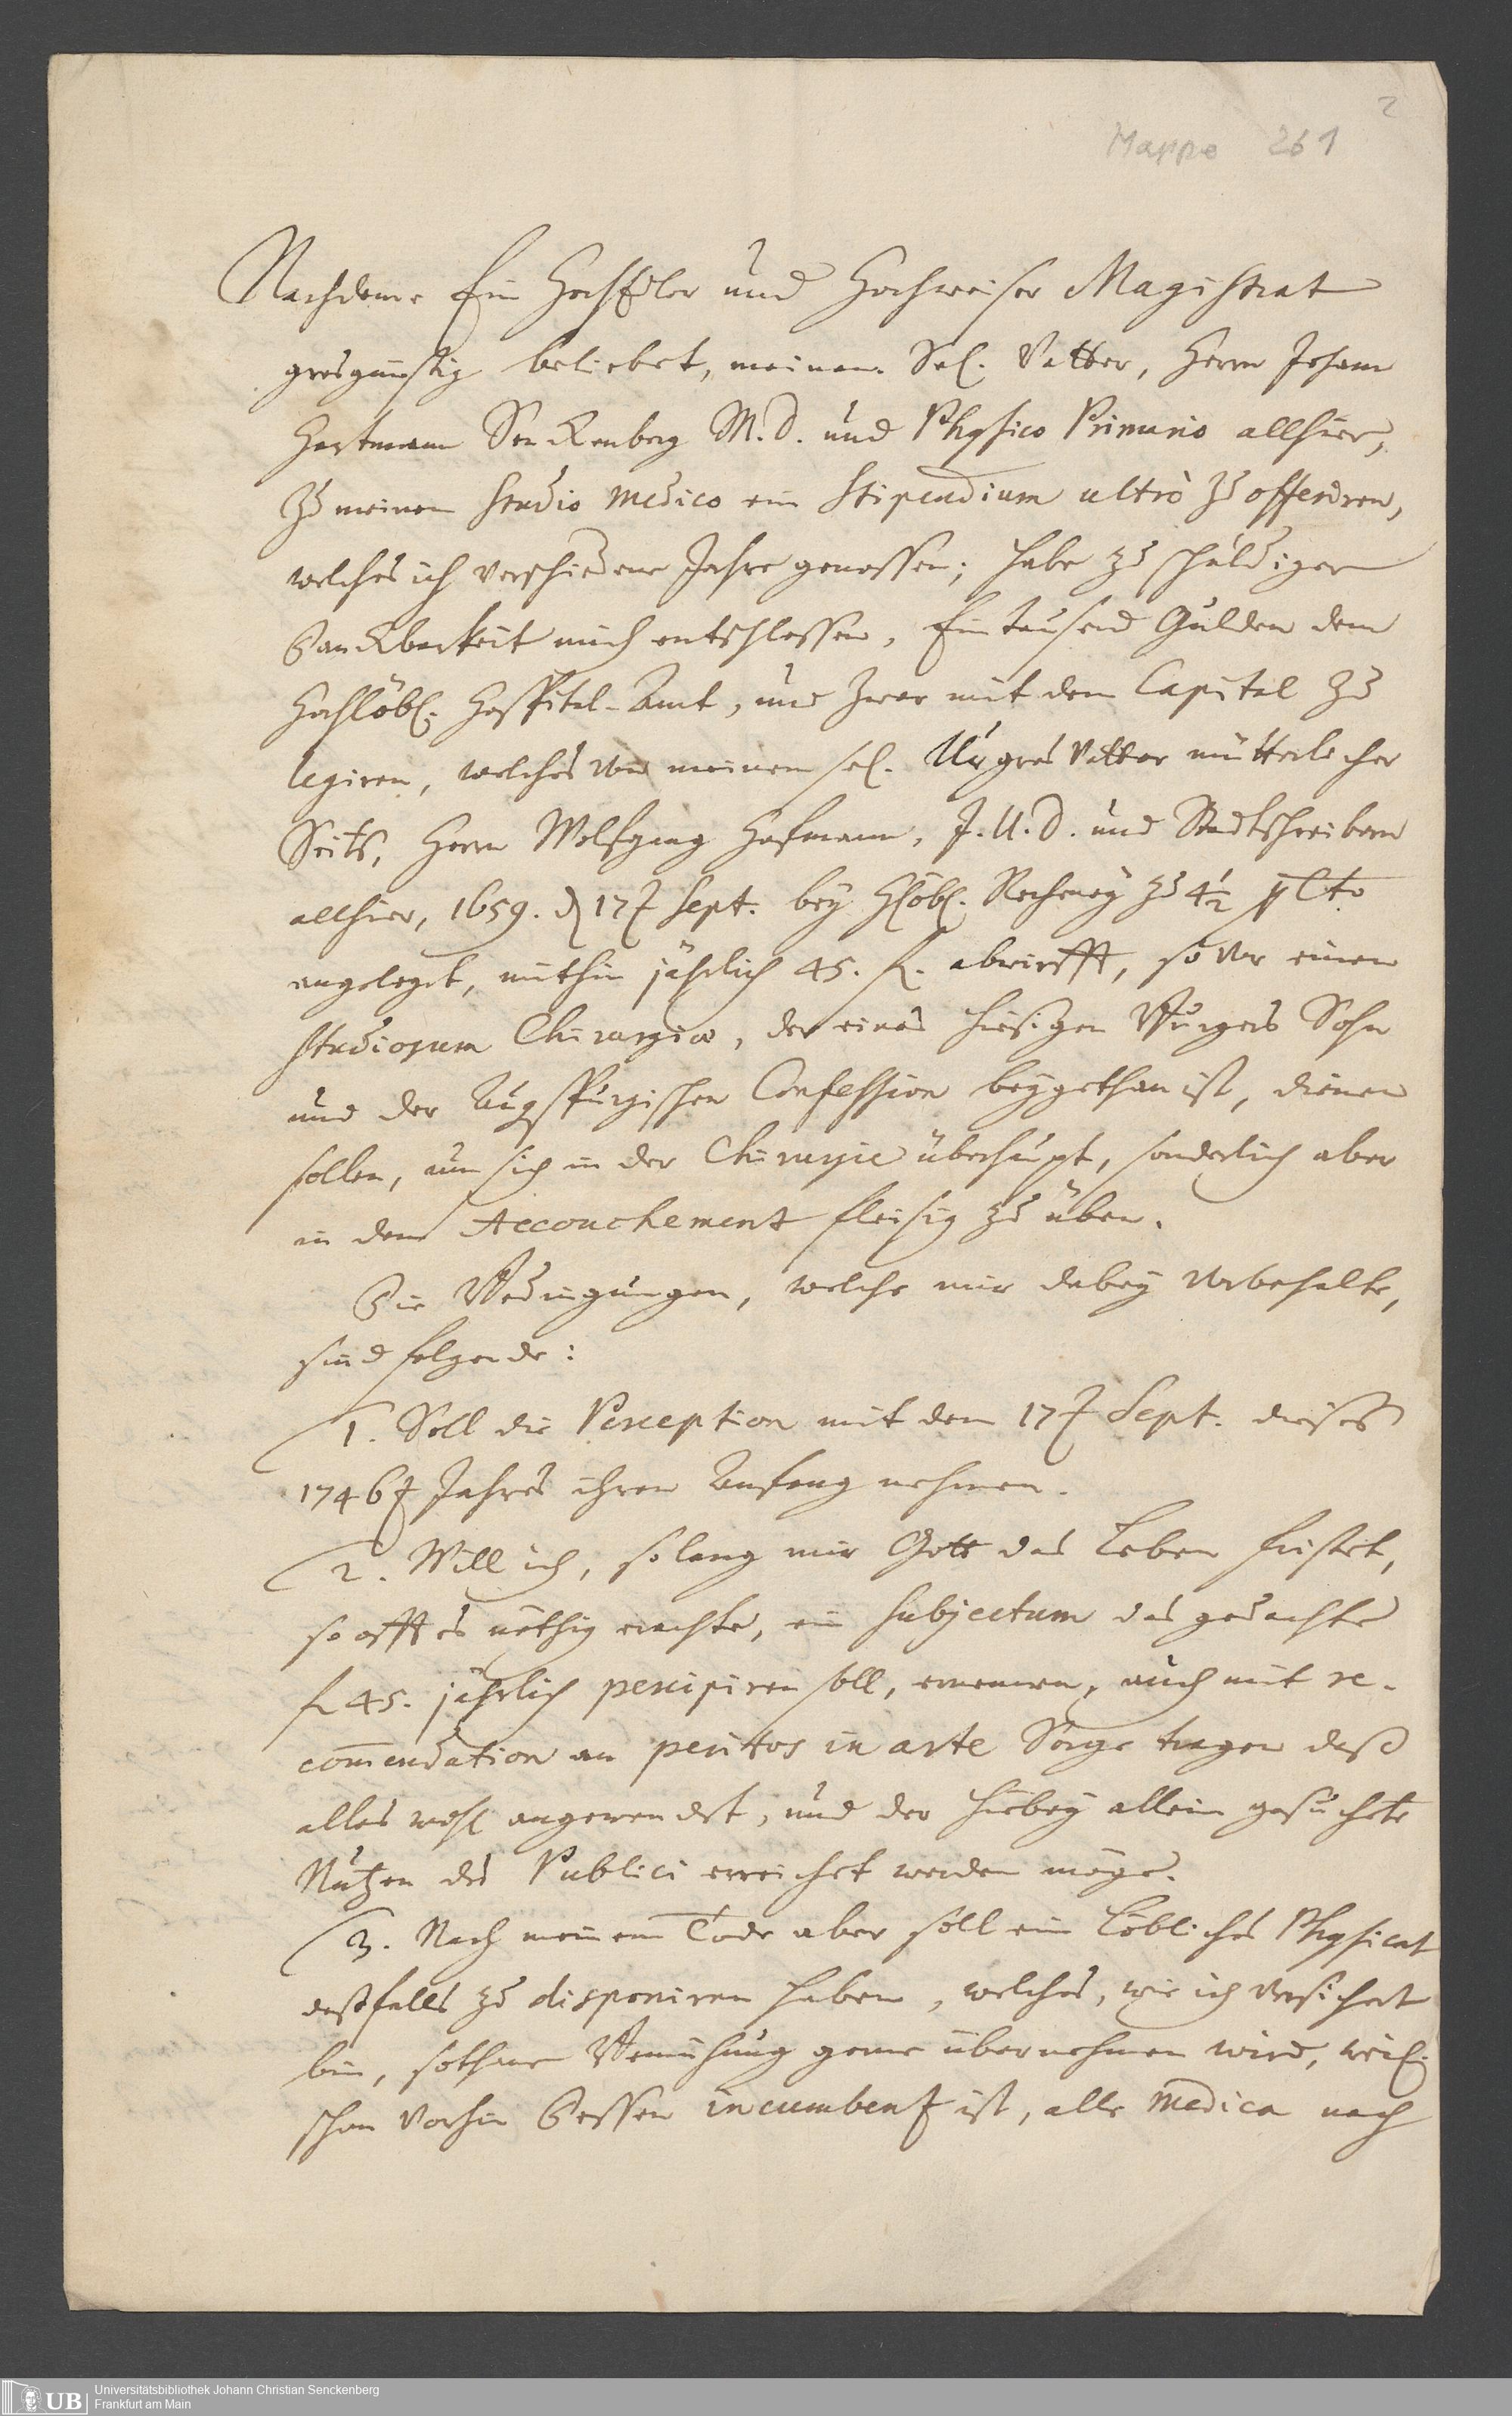 2
Mappe 261
Nachdeme Ein HochEdler und Hochweiser Magistrat
grosgünstig beliebet, meinem Sel. Vatter, Herrn Johann
Hartmann Senckenberg M.D. und Physico Primario allhier,
zu meinem Studio medico ein Stipendium ultrò zu offeriren,
welches ich verschiedene Jahre genossen; habe zu schuldiger
Danckbarkeit mich entschlossen, Eintausend Gulden dem
Hochlöbl. Hospital-Amt, und zwar mit dem Capital zu
legiren, welches von meinem sel. Urgros Vatter mütterlicher
Seits, Herrn Wolfgang Hofmann, J.U.D. und Stadtschreibern
allhier, 1659. d 17t Sept. bey Hlöbl. Rechney zu 4½ p Cto
angelegt, mithin jährlich 45. f. abwirfft, so vor einen
Studiosum Chirurgiæ, der eines hiesigen Burgers Sohn
und der Augspurgischen Confession beygethan ist, dienen
sollen, um sich in der Chirurgie überhaupt, sonderlich aber
in dem Accouchement fleisig zu üben.
Die Bedingungen, welche mir dabey vorbehalte,
sind folgende:
1. Soll die Perception mit dem 17t Sept. dieses
1746t Jahres ihren Anfang nehmen.
2. Will ich, solang mir Gott das Leben fristet,
so offt es nöthig erachte, ein Subjectum das gedachte
f 45. jährlich percipiren soll, ernennen, auch mit re-
com̄endation an peritos in arte Sorge tragen daß
alles wohl angewendet, und der hiebey allein gesuchte
Nutzen des Publici erreichet werden möge.
3. Nach meinem Tode aber soll ein Löbliches Physicat
desfalls zu disponiren haben, welches, wie ich versichert
bin, sothane Bemühung gerne übernehmen wird, weil
schon vorhin Dessen incumbenz ist, alle medica nach
UB
Universitätsbibliothek Johann Christian Senckenberg
Frankfurt am Main